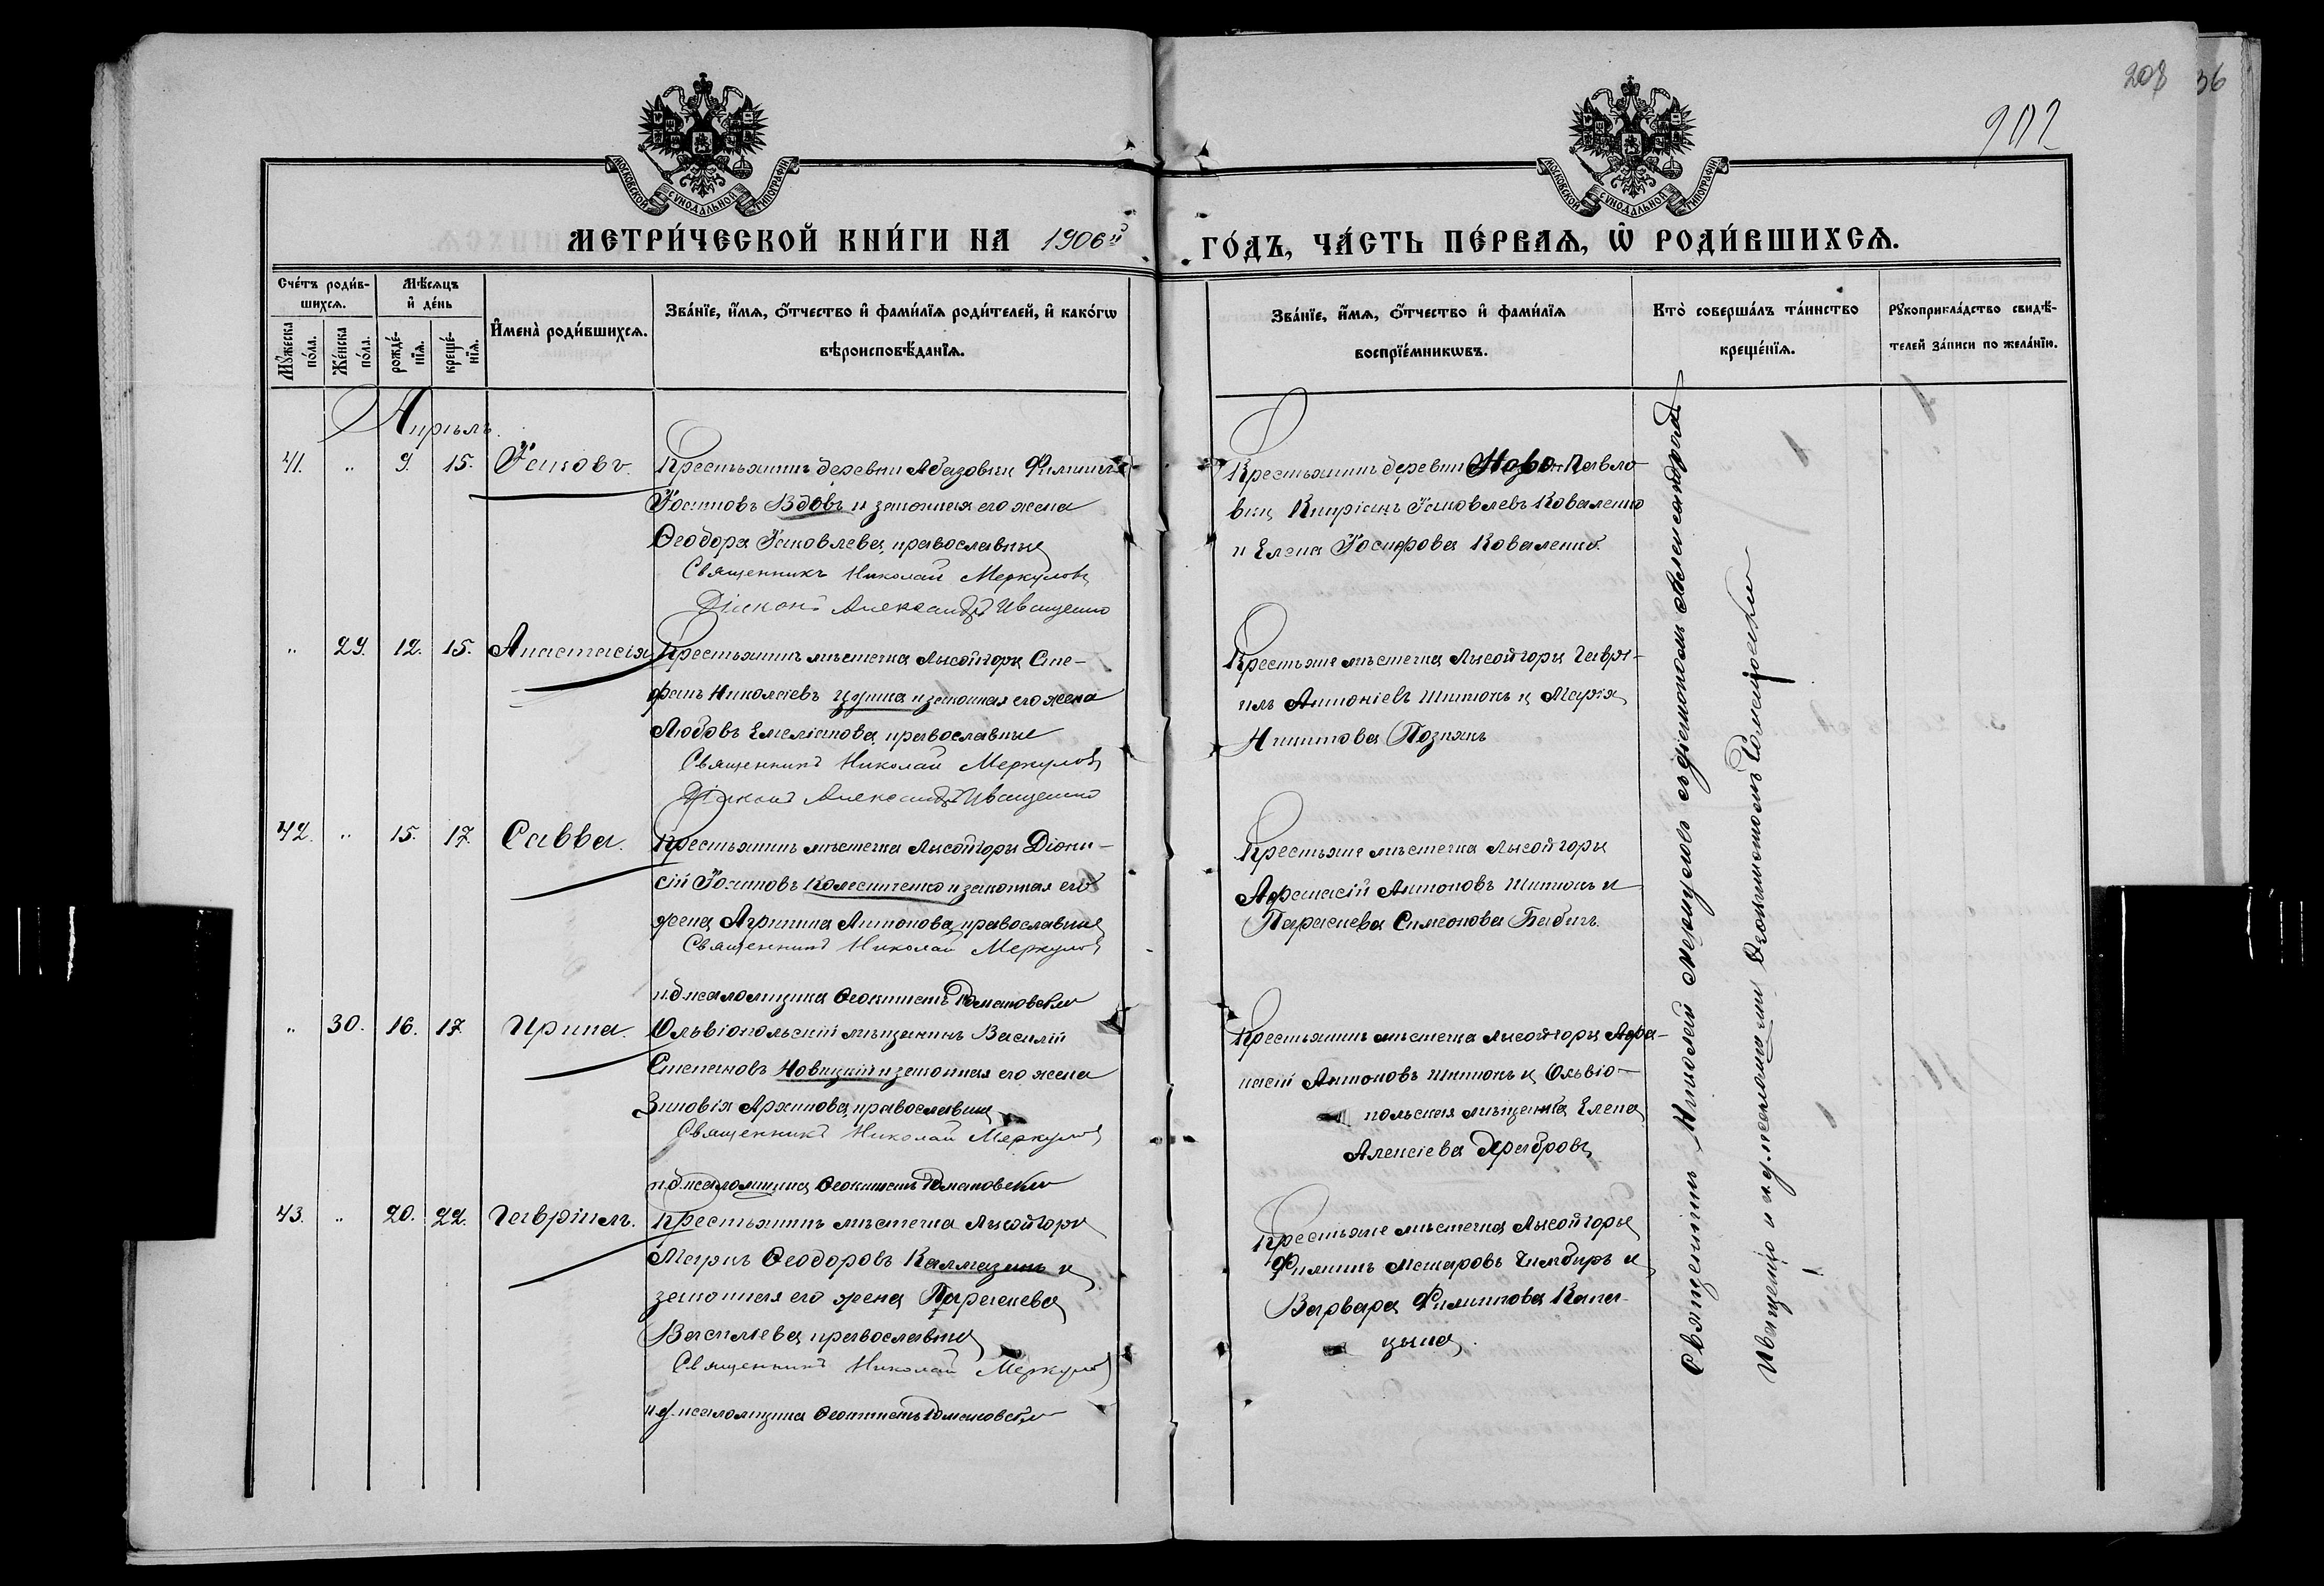 208 36
902
МОСКОВСКОЙ СѴНОДАЛЬНОЙ ТИПОГРАФІИ
МОСКОВСКОЙ СѴНОДАЛЬНОЙ ТИПОГРАФІИ
МЕТРИ́ЧЕСКОЙ КНИ́ГИ НА 1906й ГО́ДЪ, ЧА́СТЬ ПЕ́РВАѦ, Ѿ РОДИ́ВШИХСѦ.
Сче́тъ роди́в-
шихсѧ.
Мѣ́сѧцъ
и҆ де́нь
Мꙋ́жеска
по́ла.
Же́нска
по́ла.
рожде́-
нїѧ.
креще́-
нїѧ.
И҆мена̀ роди́вшихсѧ.
Зва́нїе, и҆́мѧ, ѻ҆́тчество и҆ фами́лїѧ роди́телей, и҆ како́гѡ
вѣроисповѣ́данїѧ.
Зва́нїе, и҆́мѧ, ѻ҆́тчество и҆ фами́лїѧ
воспрїе́мникѡвъ.
Кто̀ соверша́лъ та́инство
креще́нїѧ.
Рꙋкоприкла́дство свидѣ́-
телей за́писи по жела́нїю.
Апрѣль.
41. " 9. 15. Іаковъ.
Крестьянинъ деревни Абазовки Филиппъ
Іоанновъ Вдовъ и законная его жена
Ѳеодора Іаковлева, православные
Священникъ Николай Меркуловъ
Діаконъ Александръ Иващенко
Крестьянинъ деревни Ново-Павло-
вки Кипріанъ Іаковлевъ Коваленко
и Елена Іосифова Коваленко.
" 29. 12. 15. Анастасія
Крестьянинъ мѣстечка Лысойгоры Сте-
фанъ Николаевъ Цуриа и законная его жена
Любовь Емеліанова, православные
Священникъ Николай Меркуловъ
Діаконъ Александръ Иващенко
Крестьяне мѣстечка Лысойгоры Гаврі-
илъ Антоніевъ Шитюкъ и Марія
Никитова Познякъ
42. " 15. 17. Савва.
Крестьянинъ мѣстечка Лысойгоры Діони-
сій Іоанновъ Колесниченко и законная его
жена Агрипина Антонова, православные
Священникъ Николай Меркуловъ
и.д. псаломщика Ѳеоктистъ Романовскій
Крестьяне мѣстечка Лысойгоры
Афанасій Антоновъ Шитюкъ и
Параскева Симеонова Бабичъ.
" 30. 16. 17. Ирина.
Ольвіопольскій мѣщанинъ Василій
Степановъ Новицкій и законная его жена
Зиновія Архипова, православные
Священникъ Николай Меркуловъ
и.д. псаломщика Ѳеоктистъ Романовскій
Крестьянинъ мѣстечка Лысойгоры Афа-
насій Антоновъ Шитюкъ и Ольвіо-
польская мѣщанка Елена
Алексіева Храброва
43. " 20. 22. Гавріилъ.
Крестьянинъ мѣстечка Лысойгоры
Маркъ Ѳеодоровъ Калмазанъ и
законная его жена Параскева
Василіева, православные
Священникъ Николай Меркуловъ
и.д. псаломщика Ѳеоктистъ Романовскій
Крестьяне мѣстечка Лысойгоры
Филиппъ Макаровъ Чимбиръ и
Варвара Филиппова Капа-
цына.
Священникъ Николай Меркуловъ съ діакономъ Александромъ
Иващенко и и.д. псаломщика Ѳеоктистомъ Романовскимъ